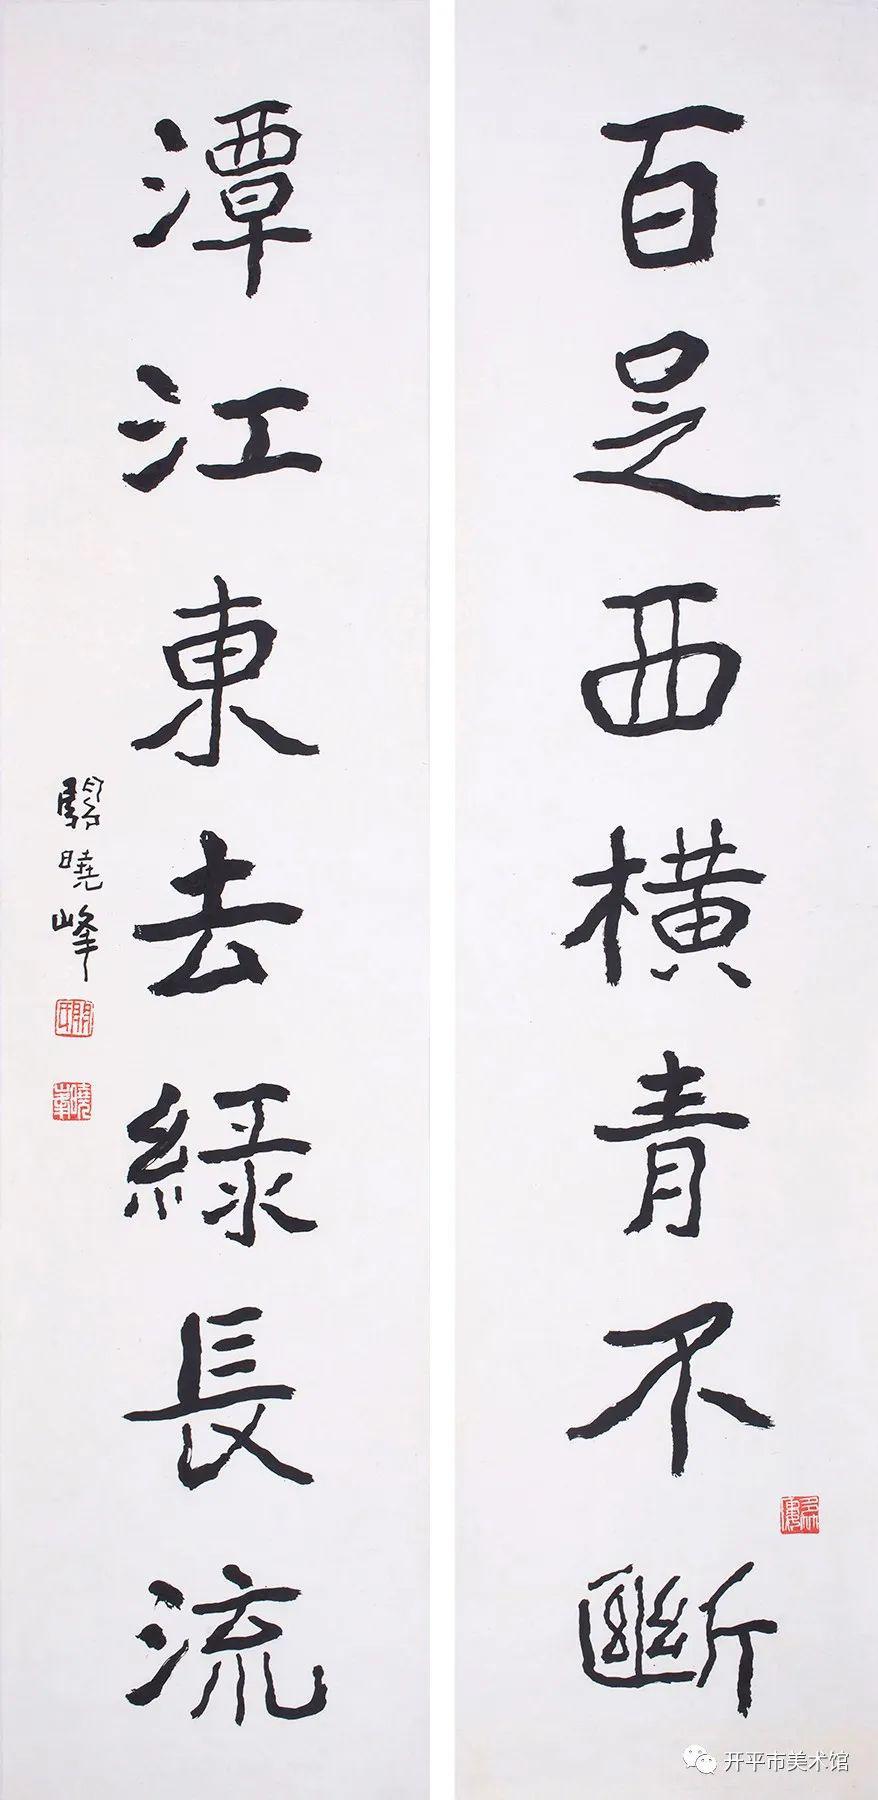 百足西橫青不斷
潭江東去綠長流
關曉峰
曉峯
开平市美术馆